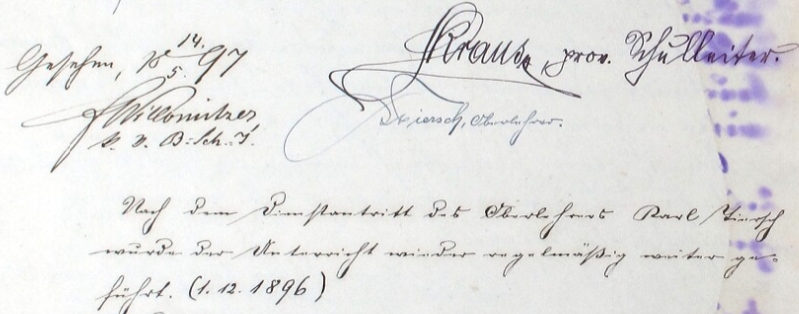 Gesehen, 18 14./5. 97
Kraus, prov. Schulleiter.
Willomitzer
k. k. B.-Sch.-I.
Tiersch, Oberlehrer.
Nach dem Dienstantritt des Oberlehrers Karl Tiersch
wurde der Unterricht wieder regelmäßig weiter ge-
führt. (1. 12. 1896)